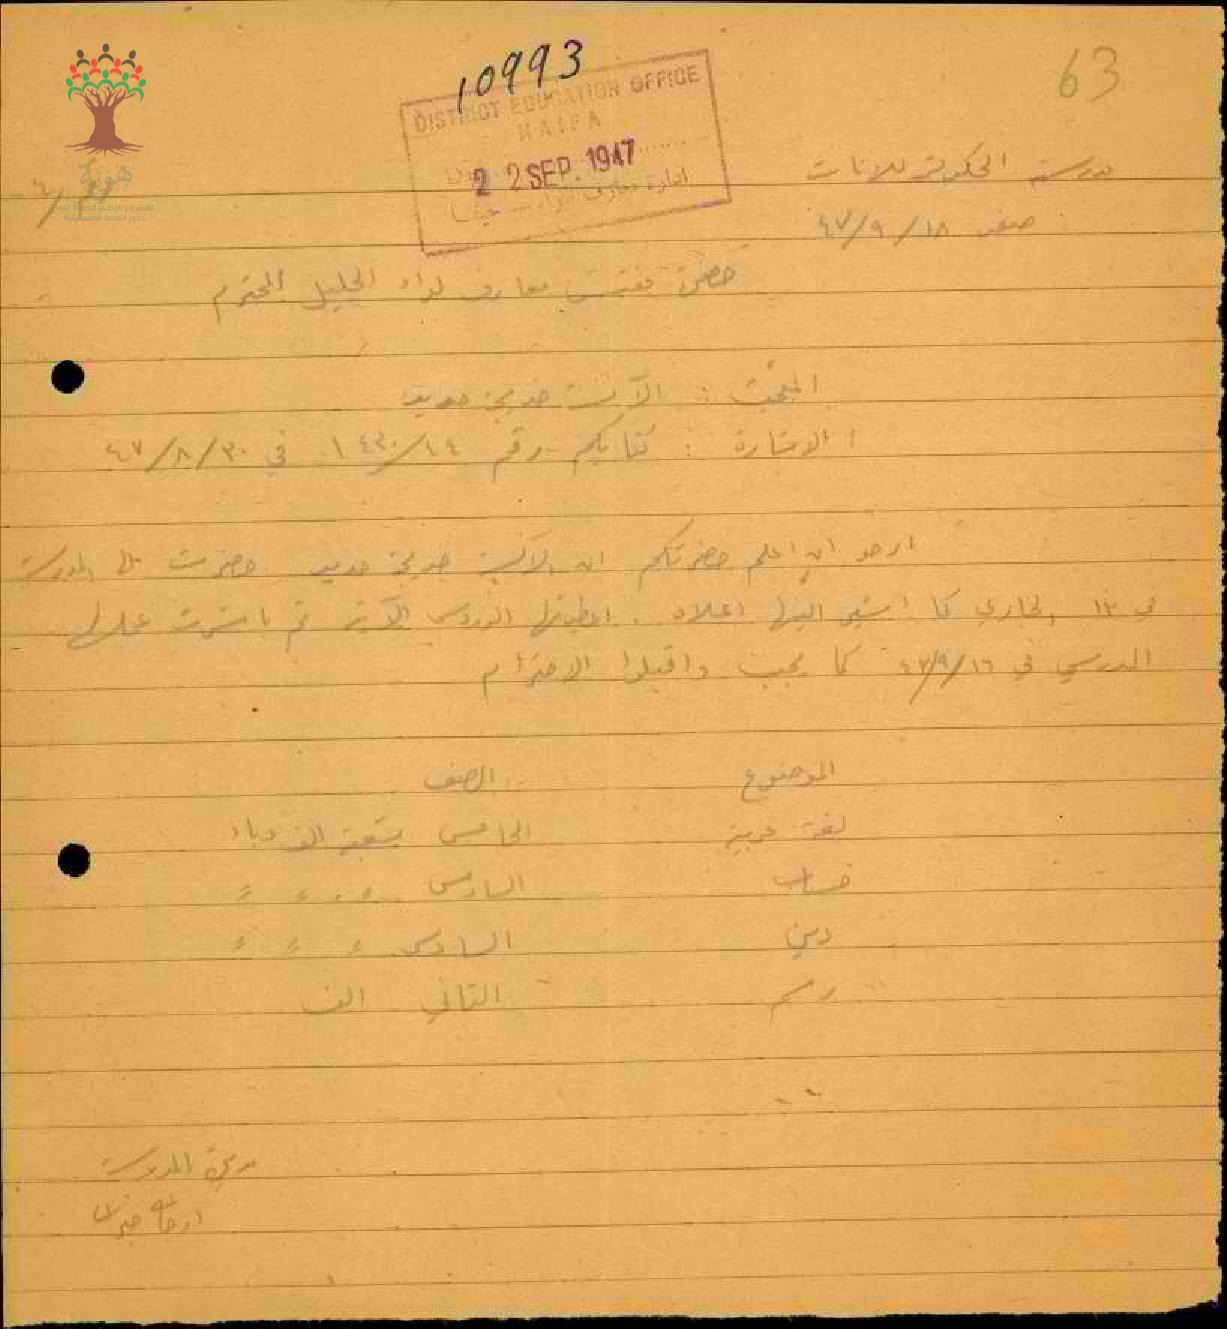 10993
63
DISTRICT EDUCATION OFFICE
HAIFA
22 SEP. 1947
ادارة معارف لواء حيفا
هوية
مدرسة الحكومة للبنات
صفد ١٨/٩/٤٧
حضرة مفتش معارف لواء الجليل المحترم
المبحث : الآنسة خديجة حديد
الاشارة : كتابكم رقم في ٣٠/٨/٤٧
ارجو ان اعلم حضرتكم ان الآنسة خديجة حديد حضرت الى المدرسة
في الجاري كما اشير اليها اعلاه . اعطيتها الدروس الآتية ثم باشرت عملها
المدرسي في ١٦/٩/٤٧ كما يجب واقبلوا الاحترام
الموضوع الصف
لغة عربية الخامس بشعبتيه الف وباء
حساب السادس " " "
دين السادس " " "
رسم الثاني الف
مديرة المدرسة